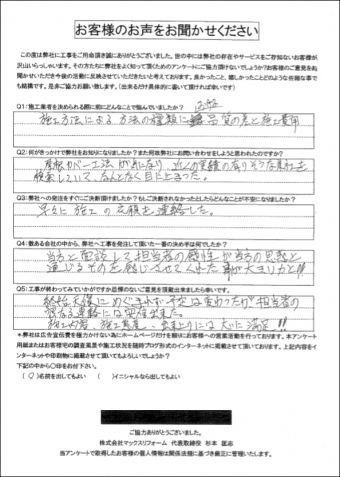 お客様のお声をお聞かせください
この度は弊社に工事をご用命頂き誠にありがとうございました。世の中には弊社の存在やサービスをご存知ないお客様が
沢山いらっしゃいます。その方たちに弊社をよく知って頂くためのアンケートにご協力頂けないでしょうか?お客様のご意見をお
聞かせいただき今後の活動に反映させていただきたいと考えております。良かったこと、嬉しかったことどのような些細な事で
も結構です。是非ご協力お願い致します。(出来るだけ具体的に書いて頂ければ幸いです)
Q1:施工業者を決められる際に前にどんなことで悩んでいましたか?
施工方法による方法の種類に 品質の差と施工費用
Q2:何がきっかけで弊社をお知りになりましたか?また何故弊社にお問い合わせをしようと思われたのですか?
屋根カバー工法が気になり、近くの実績の有りそうな会社を
検索していて、なんとなく目に止まった。
Q3:弊社への発注をすぐにご決断頂けましたか?もしご決断されなかったとしたらどんなことが不安になりましたか?
早々に施工の依頼を連絡した。
Q4:数ある会社の中から、弊社へ工事を発注して頂いた一番の決め手は何でしたか?
当方と面談して担当者の感性が当方の思惑と
通じるものを感じさせてくれた事が大ヨリカと!!
Q5:工事が終わってみていかがですか忌憚のないご意見を頂戴出来ましたら幸いです。
終始天候にめぐまれず予定は変わったが担当者の
連絡には 出来た。
施工内容、施工態度、出来上りには大いに満足!!
*.弊社は広告宣伝費を極力かけない為にホームページだけを頼りにお客様への営業活動を行っております。本アンケート
用紙またはお客様宅の調査風景や施工状況を随時ブログ形式のインターネットに掲載させて頂いております。上記内容をイ
ンターネットや印刷物に掲載させて頂いてもよろしいでしょうか?
下記の中から○印をお付下さい。
(○)名前を出してもよい ( )イニシャルなら出してもよい
ご協力ありがとうございました。
株式会社マックスリフォーム 代表取締役 杉本 匡志
当アンケートで取得したお客様の個人情報は関係法規に基づき厳正に管理いたします。